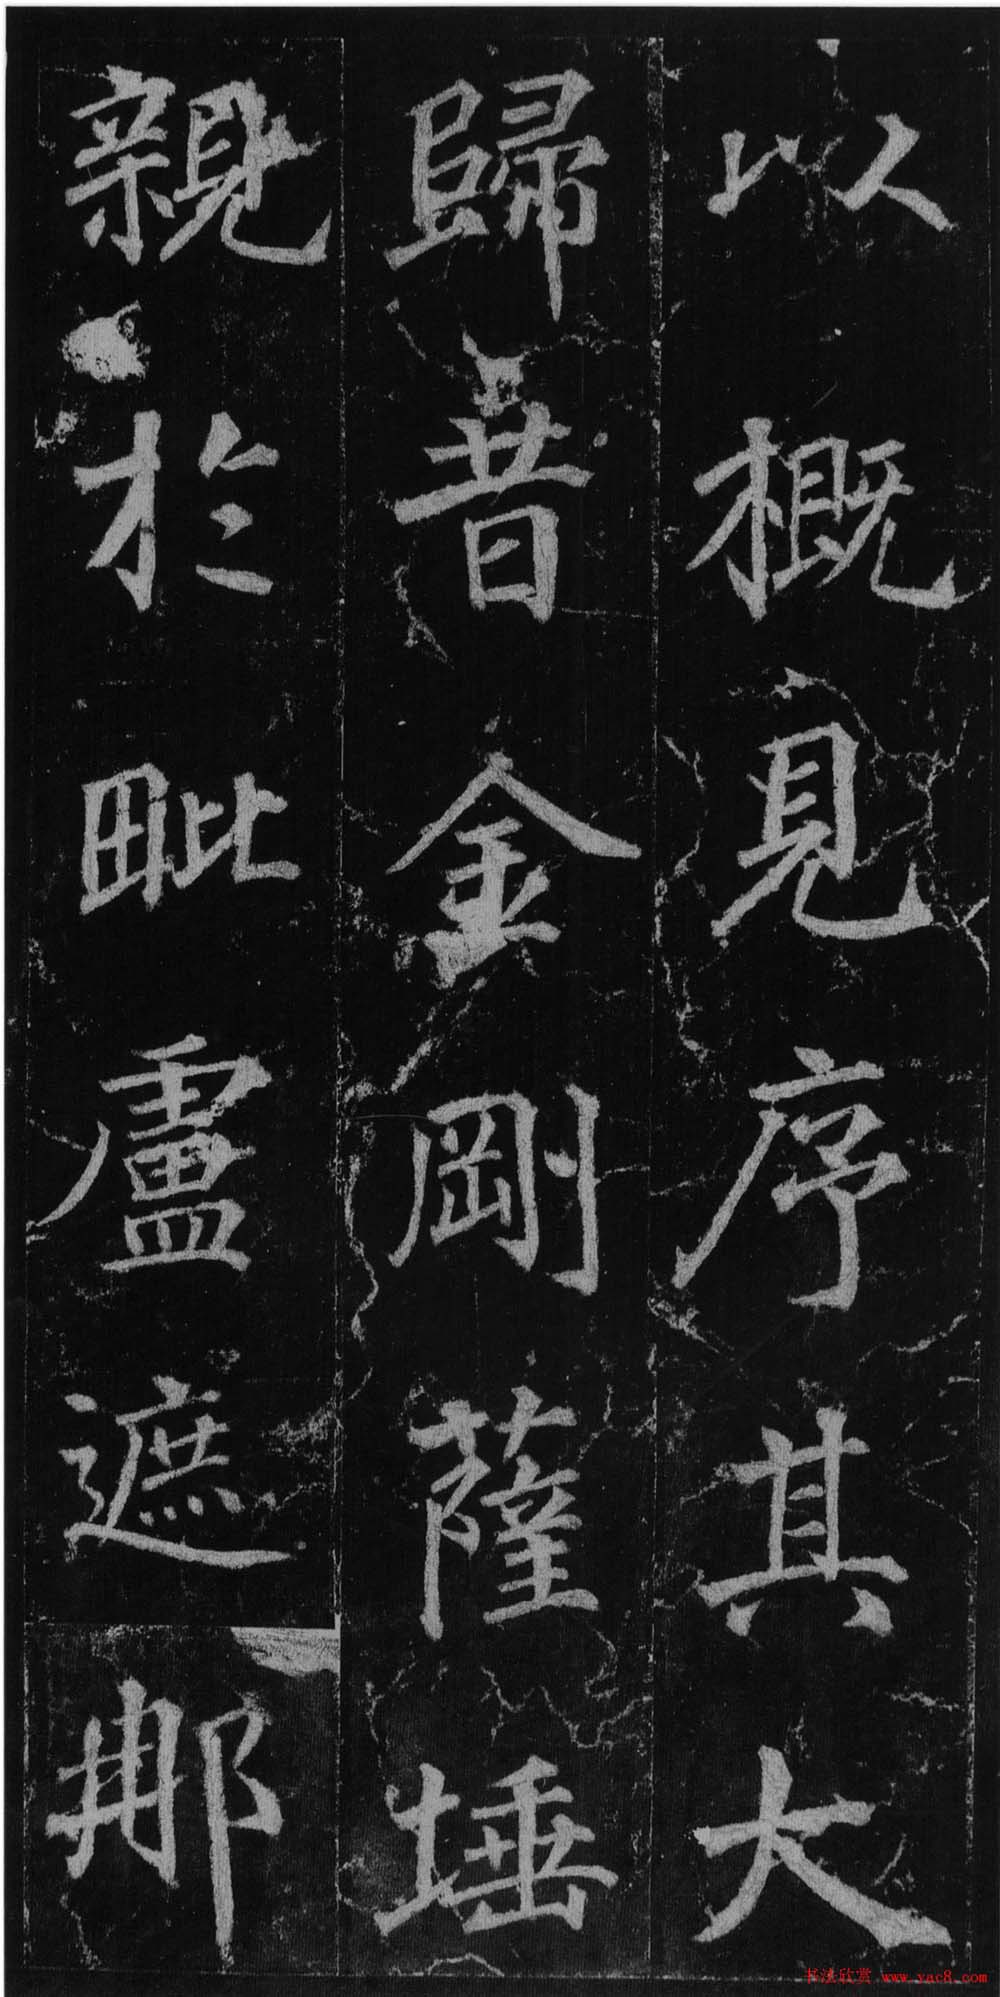 以概見序其大
歸昔金剛薩埵
親於毗盧遮那
书法欣赏 www.yac8.com